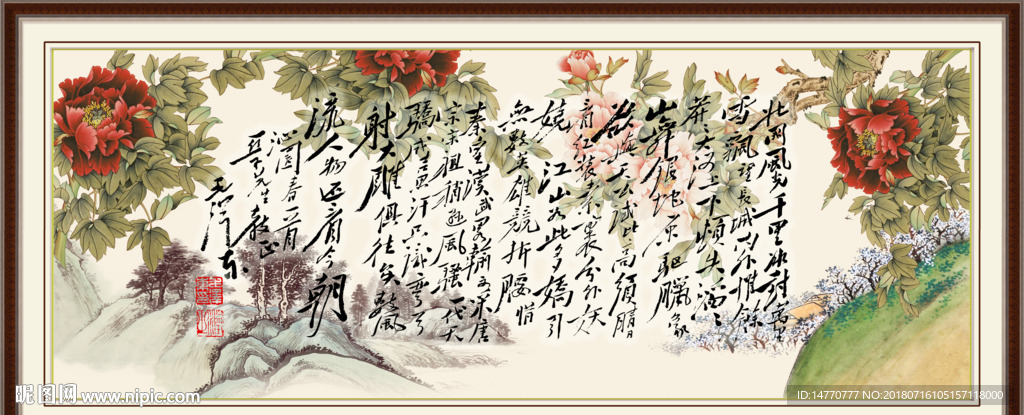 北国風光千里冰封萬里
雪飄望長城内外惟餘
莽莽大河上下頓失滔滔
山舞銀蛇原驅臘象
欲與天公試比高須晴
日看红裝素裹分外妖
嬈江山如此多嬌引
無数英雄競折腰惜
秦皇漢武畧輸文采唐
宗宋祖稍遜風騷一代天
驕成吉思汗只識彎弓
射大雕俱往矣數風
流人物还看今朝
沁園春一首
亞子先生教正
毛澤东
昵图网
www.nipic.com
ID:14770777 NO:20180716105157118000